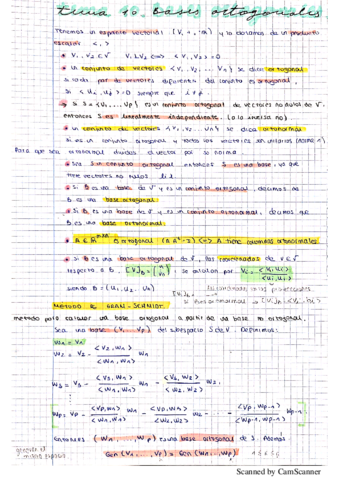 Tema 10. Bases ortogonales
Tenemos un espacio vectorial (V, +, ·R) y lo dotamos de un producto
escalar < , >
V₁, V₂ ∈ V V₁ ⊥ V₂ <=> <V₁, V₂> = 0
un conjunto de vectores {V₁, V₂ ... Vn} se dice ortogonal
si cada par de vectores diferente del conjunto es ortogonal
Si <Vi, Vj> = 0 siempre que i ≠ j.
Si S = {V₁, ... Vp} es un conjunto ortogonal de vectores no nulos de V.
entonces S es linealmente independiente. (La inversa no)
un conjunto de vectores {V₁, V₂ ... Vn} se dice ortonormal
si es un conjunto ortogonal y todos los vectores son unitarios (norma 1)
Para que sea ortonormal divides el vector por su norma.
Sea S un conjunto ortogonal entonces S es una base, ya que
tiene vectores no nulos l.i.
Si B es una base de V y es un conjunto ortogonal, decimos que
B es una base ortogonal
Si B es una base de V y es un conjunto ortonormal, decimos que
B es una base ortonormal.
A ∈ R ortogonal (Aᵗ = A⁻¹) <=> A tiene columnas ortonormales
Si B es una base ortogonal de V, las coordenadas de v ∈ V
respecto a B, [V]B = se calculan por Vi = <V, Ui> / <Ui, Ui>
siendo B = (U₁, U₂, Un)
MÉTODO DE GRAM-SCHMIDT
método para calcular una base ortogonal a partir de una base no ortogonal.
Sea una base (V₁ ... Vp) del subespacio S de V. Definimos:
W₁ = V₁
W₂ = V₂ - <V₂, W₁> / <W₁, W₁> W₁
W₃ = V₃ - <V₃, W₁> / <W₁, W₁> W₁ - <V₃, W₂> / <W₂, W₂> W₂.
Wp = Vp - <Vp, W₁> / <W₁, W₁> W₁ - <Vp, W₂> / <W₂, W₂> W₂ ... - <Vp, Wp-1> / <Wp-1, Wp-1> Wp-1.
entonces {W₁, ..., Wp} es una base ortogonal de S. Además
Gen (V₁, ..., Vp) = Gen (W₁, ... Wp)
Scanned by CamScanner